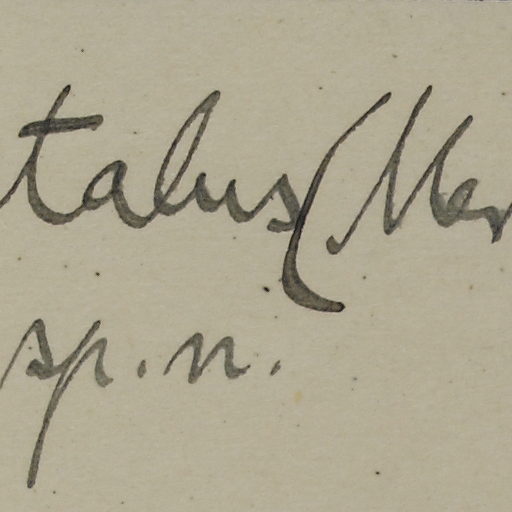 talus (Mer
sp. n.